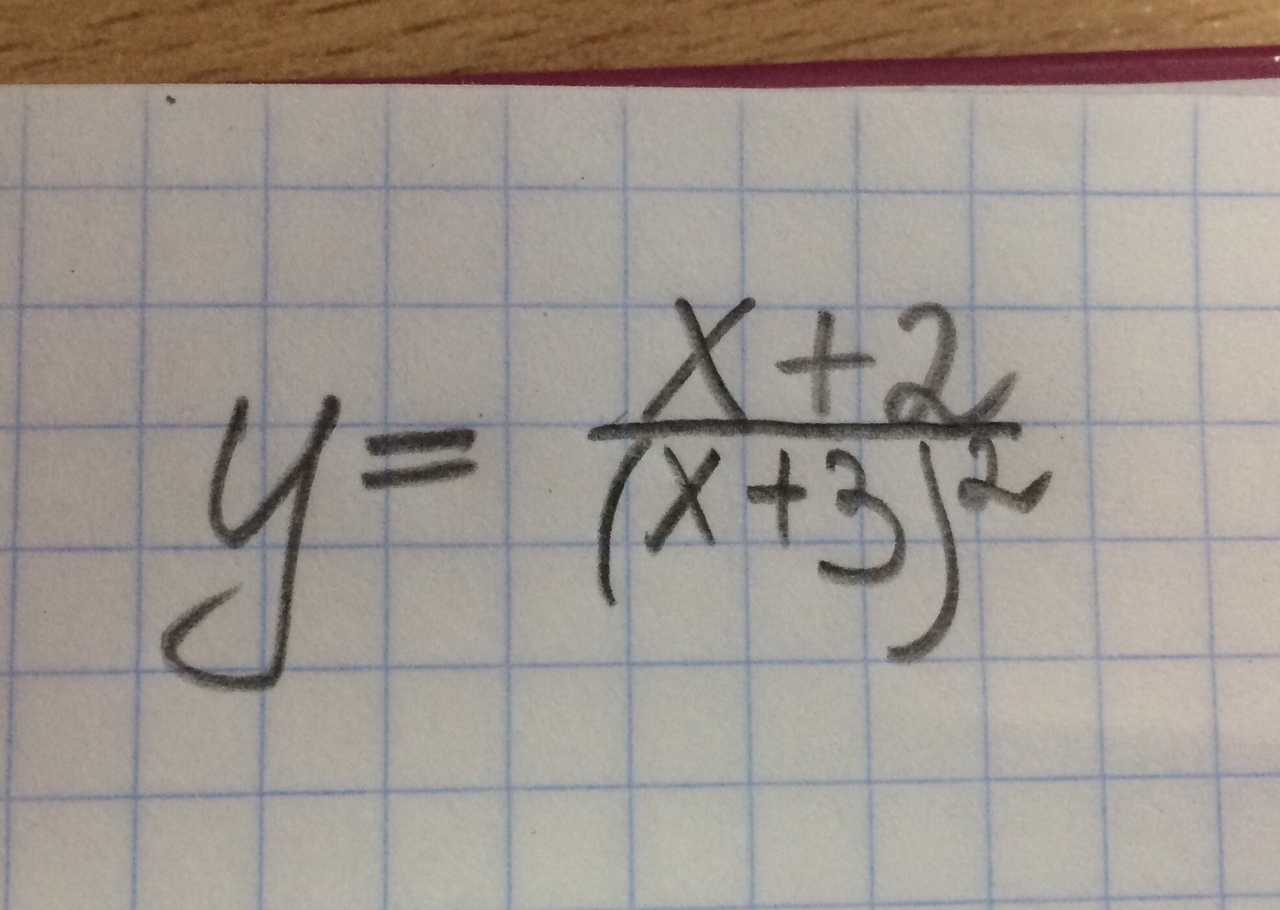 y = (x+2)/(x+3)²